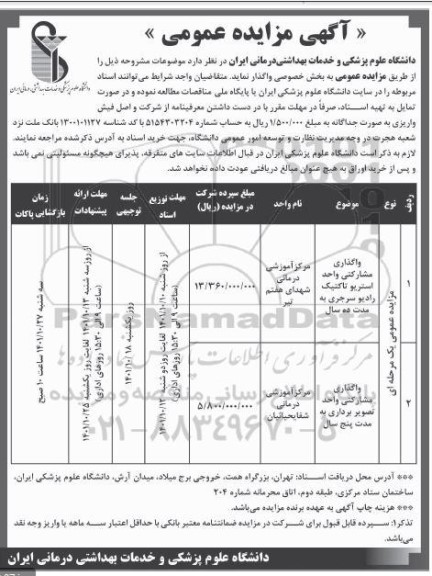 « آگهی مزایده عمومی »
دانشگاه علوم پزشکی و خدمات بهداشتی درمانی ایران
دانشگاه علوم پزشکی و خدمات بهداشتی‌درمانی ایران در نظر دارد موضوعات مشروحه ذیل را
از طریق مزایده عمومی به بخش خصوصی واگذار نماید. متقاضیان واجد شرایط می‌توانند اسناد
مربوطه را در سایت دانشگاه علوم پزشکی ایران یا پایگاه ملی مناقصات مطالعه نموده و در صورت
تمایل به تهیه اسناد، صرفاً در مهلت مقرر با در دست داشتن معرفینامه از شرکت و اصل فیش
واریزی به صورت جداگانه به مبلغ ۱/۵۰۰/۰۰۰ ریال به حساب شماره ۵۱۵۴۳۰۳۲۰۴ با کد شناسه ۱۳۰۰۱۰۱۱۲۷ بانک ملت نزد
شعبه هجرت در وجه مدیریت نظارت و توسعه امور عمومی دانشگاه، جهت خرید اسناد به آدرس ذکرشده مراجعه نمایند.
لازم به ذکر است دانشگاه علوم پزشکی ایران در قبال اطلاعات سایت های متفرقه، پذیرای هیچگونه مسئولیتی نمی باشد
و پس از خرید اوراق به هیچ عنوان مبالغ دریافتی عودت داده نخواهد شد.
ردیف نوع موضوع نام واحد مبلغ سپرده شرکت در مزایده (ریال) مهلت توزیع اسناد جلسه توجیهی مهلت ارائه پیشنهادات زمان بازگشایی پاکات
۱ مزایده عمومی یک مرحله ای واگذاری مشارکتی واحد استریو تاکتیک رادیو سرجری به مدت ده سال مرکزآموزشی درمانی شهدای هفتم تیر ۱۳/۳۶۰/۰۰۰/۰۰۰
۲ واگذاری مشارکتی واحد تصویر برداری به مدت پنج سال مرکزآموزشی درمانی شفایحیائیان ۵/۸۰۰/۰۰۰/۰۰۰
(ساعت ۹ الی ۱۵:۳۰ روزهای اداری)
روز یکشنبه ۱۴۰۱/۱۰/۱۸
(ساعت ۹ الی ۱۵:۳۰ روزهای اداری)
سه شنبه ۱۴۰۱/۱۰/۲۷ ساعت ۱۰ صبح
ParsNamadData
۰۲۱-۸۸۳۴۹۶۷۰-۵
*** آدرس محل دریافت اسناد: تهران، بزرگراه همت، خروجی برج میلاد، میدان آرش، دانشگاه علوم پزشکی ایران،
ساختمان ستاد مرکزی، طبقه دوم، اتاق محرمانه شماره ۲۰۴
*** هزینه چاپ آگهی به عهده برنده مزایده می‌باشد.
تذکر۱: سپرده قابل قبول برای شرکت در مزایده ضمانتنامه معتبر بانکی با حداقل اعتبار سه ماهه یا واریز وجه نقد
می‌باشد.
دانشگاه علوم پزشکی و خدمات بهداشتی درمانی ایران